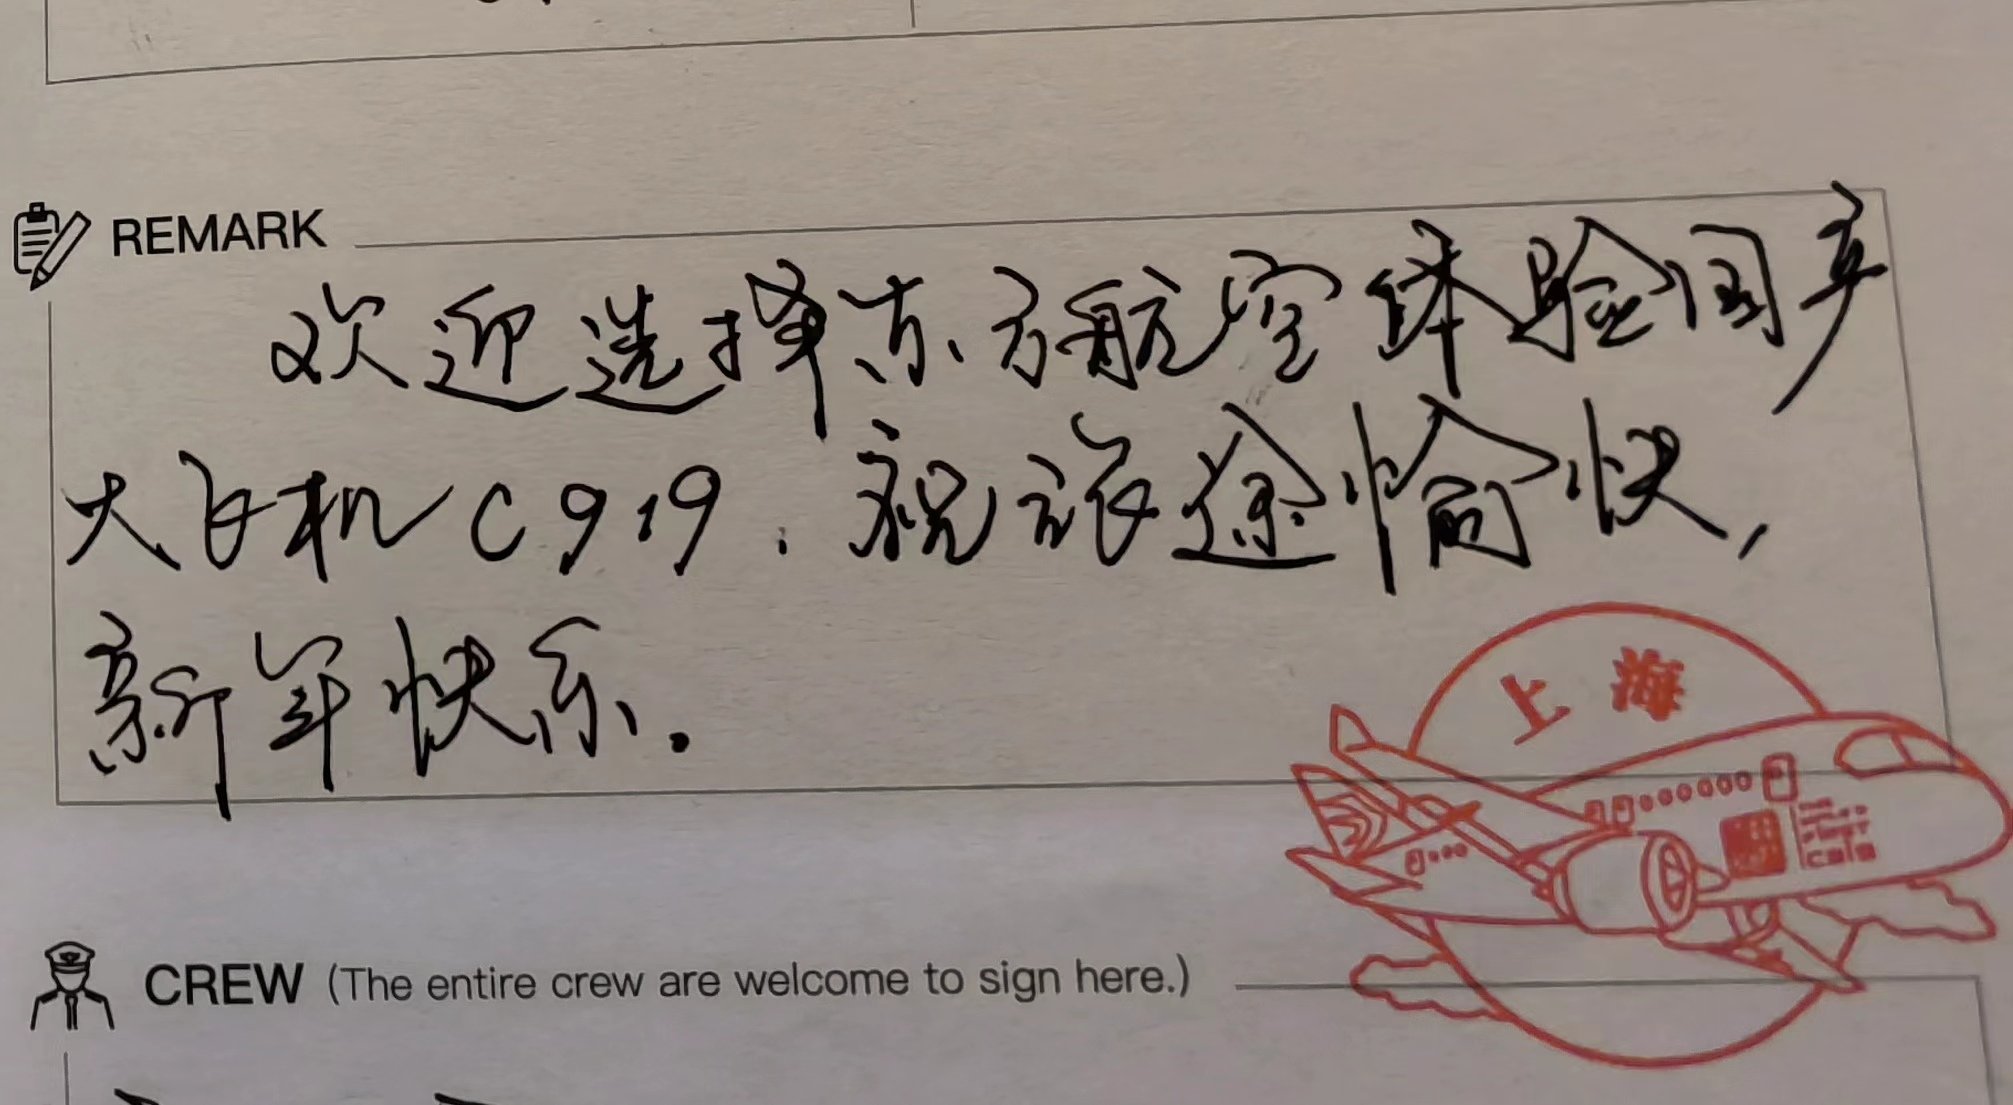 REMARK
欢迎选择东方航空体验国产
大飞机C919.祝旅途愉快,
新年快乐.
上海
CREW (The entire crew are welcome to sign here.)